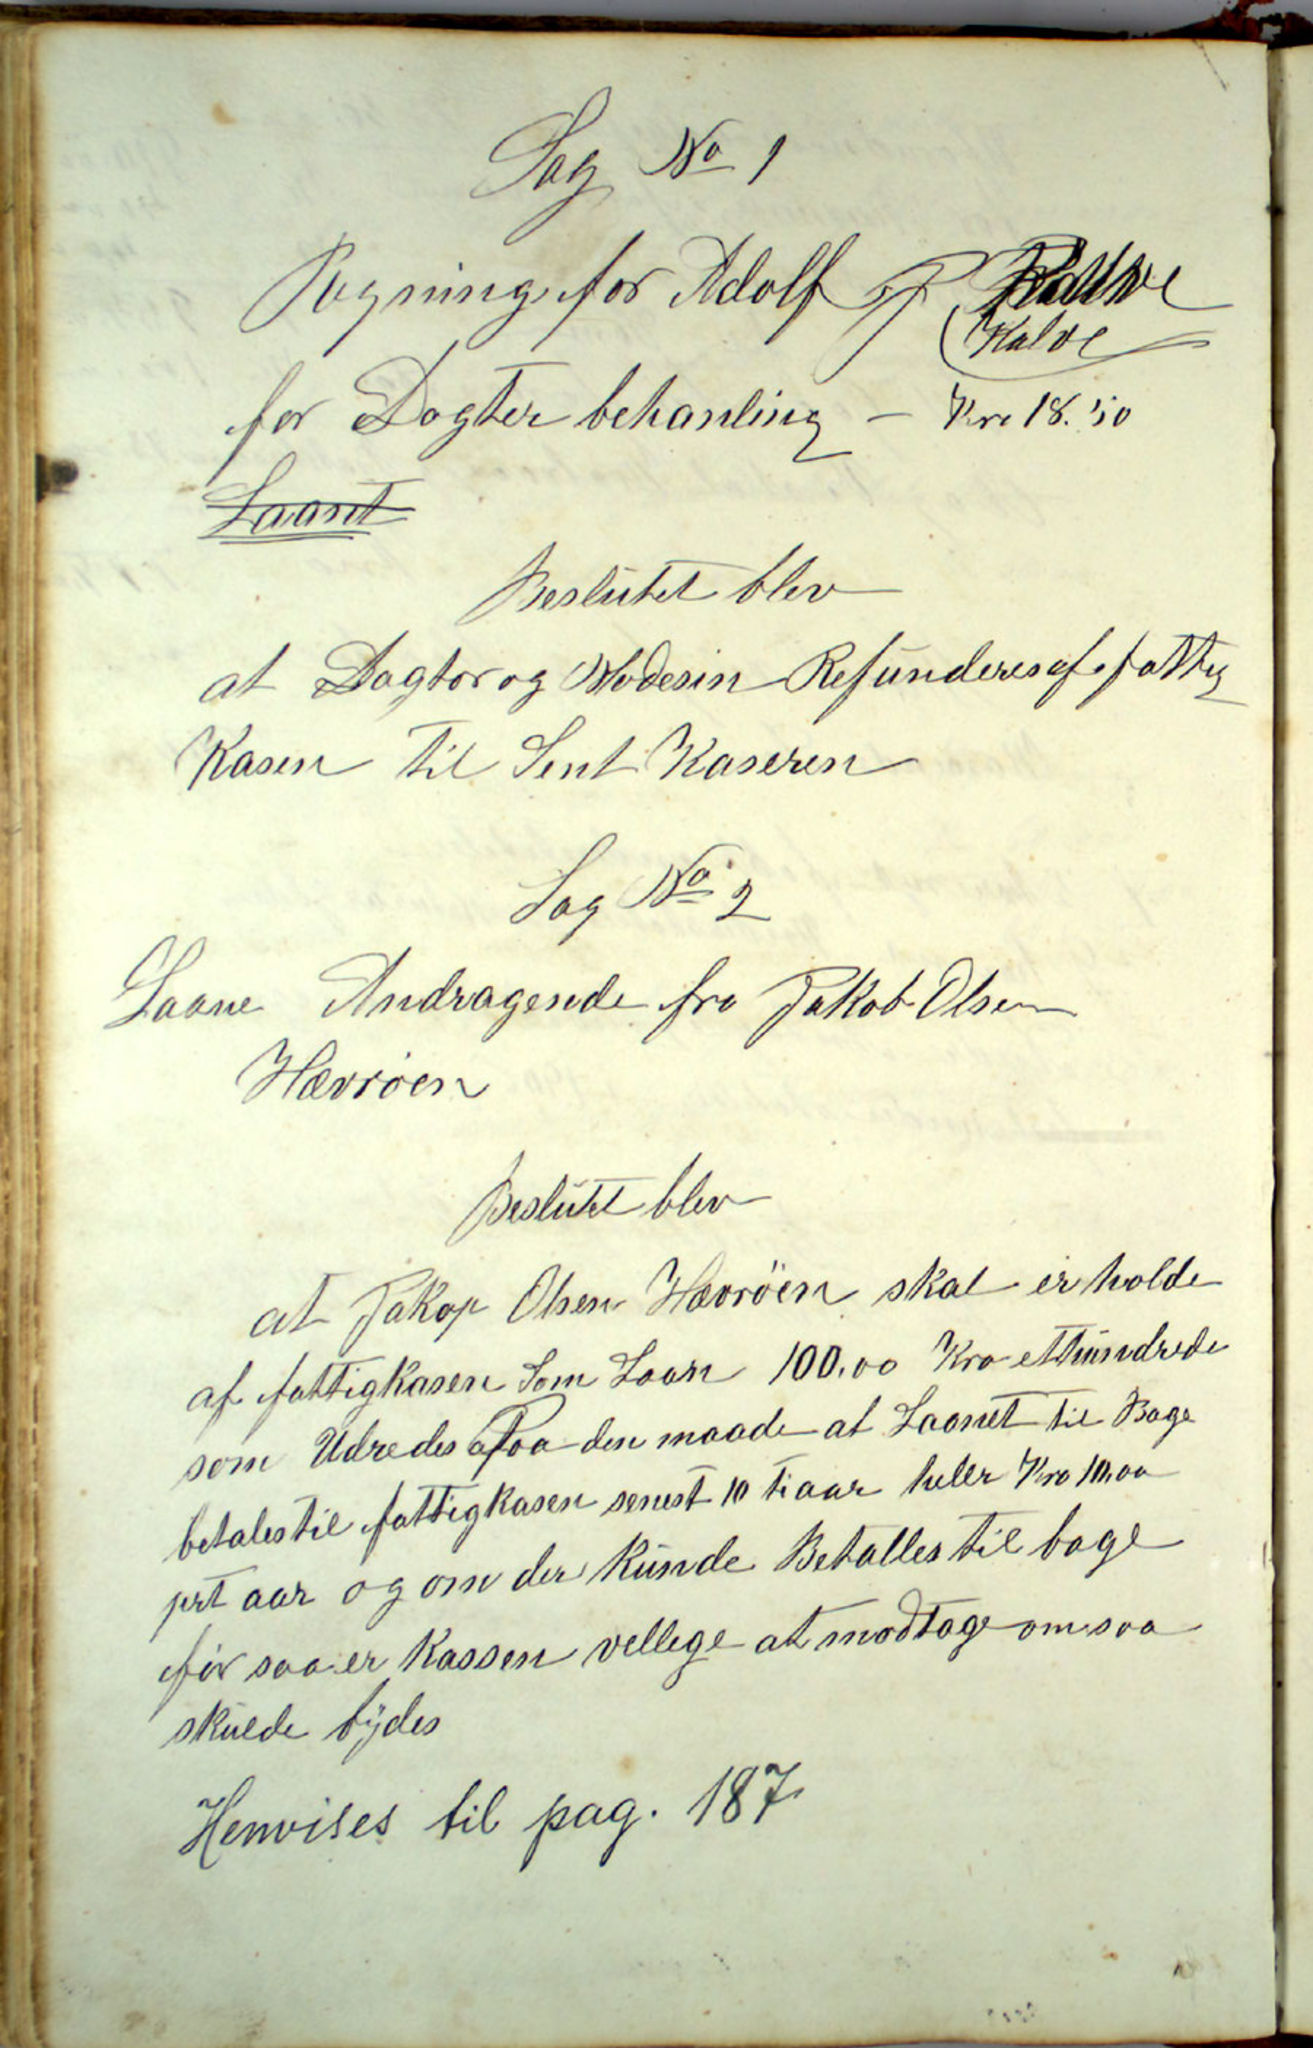 Sag No 1
Regning for Adolf J Kalve
(Kalve
for Dogter behanling - Kro 18.50
Laant
Beslutet blev
at Dogtor og Modesin Refunderes af fattig
Kasen til Sent Kaseren
Sag No 2
Laane Andragende fra Jakob Olsen
Hævröen
Beslutet blev
at Jakop Olsen Hævröen skal erholde
af fattigkasen Som Laan 100.00 Kro ethundrede
som Udredes Paa den maade at Laanet til Bage
betales til fattigkasen senest 10 ti aar heller Kro 10.00
prt aar og om der Kunde Betalles til bage
før saa er Kassen vellege at modtage om saa
skulde bydes
Henvises til pag. 187